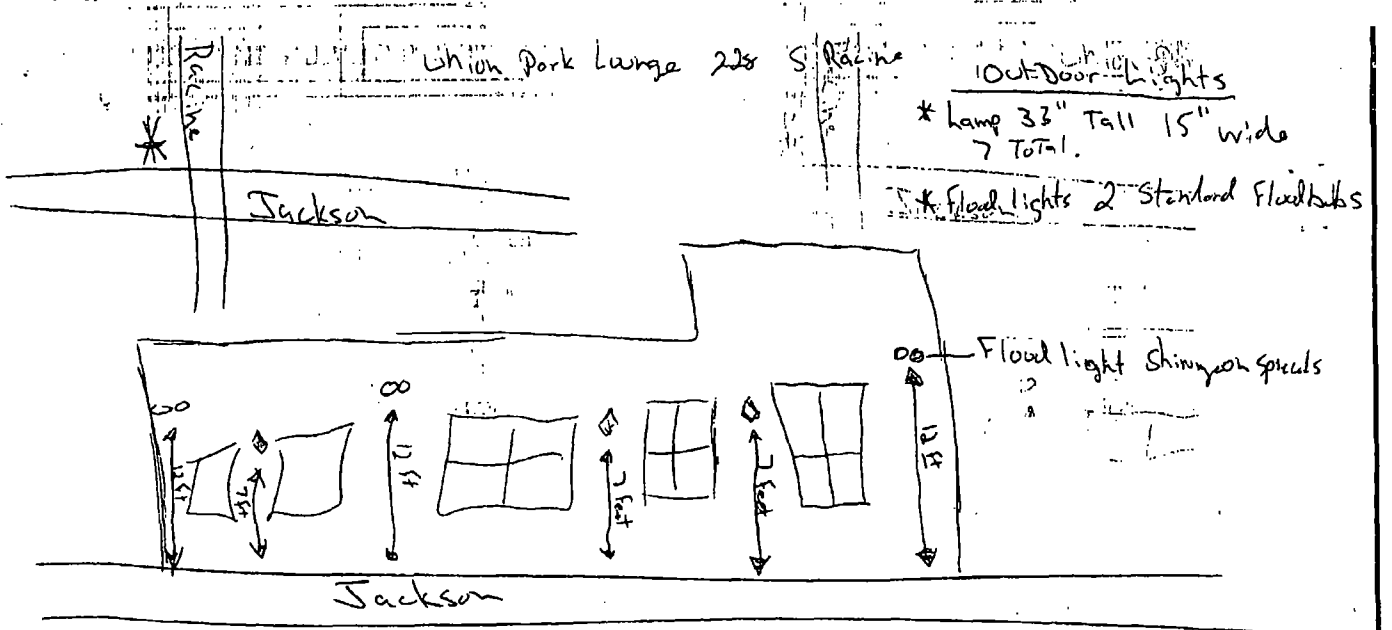 Racine
Union Park Lounge 228 S Racine
OutDoor Lights
* Lamp 33" Tall 15" wide
7 ToTal.
Jackson
* Flood lights 2 Standard Floodbulbs
Flood light Shining on
12 ft
7 ft
12 ft
7 Feet
7 Feet
12 ft
Jackson